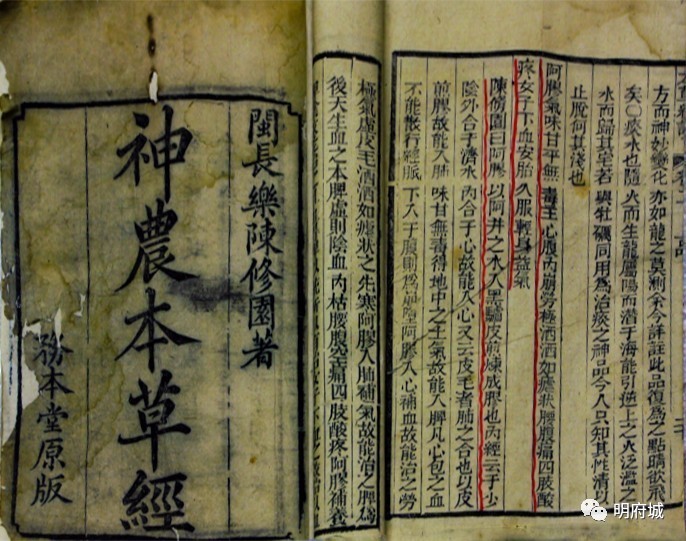 方而神妙變化亦如龍之莫測余今詳註此品復爲之點睛欲飛
矣○痰水也隨火而生龍屬陽而潛于海能引逆上之火泛濫之
水而歸其宅若與牡礪同用爲治痰之神品今人只知其性濇以
止脫何其淺也
阿膠氣味甘平無毒主心腹內崩勞極洒洒如瘧狀腰腹痛四肢酸
疼女子下血安胎久服輕身益氣
陳修園曰阿膠以阿井之水入黑驢皮煎煉成膠也內經云手少
陰外合于濟水內合于心故能入心又云皮毛者肺之合也以皮
煎膠故能入肺味甘無毒得地中之土氣故能入脾凡心包之血
不能散行經脈下入于腹則爲崩墮阿膠入心補血故能治之勞
極氣虛皮毛洒洒如瘧狀之先寒阿膠入肺補氣故能治之脾爲
後天生血之本脾虛則陰血內枯腰腹空痛四肢酸疼阿膠補養
閩長樂陳修園著
神農本草經
務本堂原版
明府城